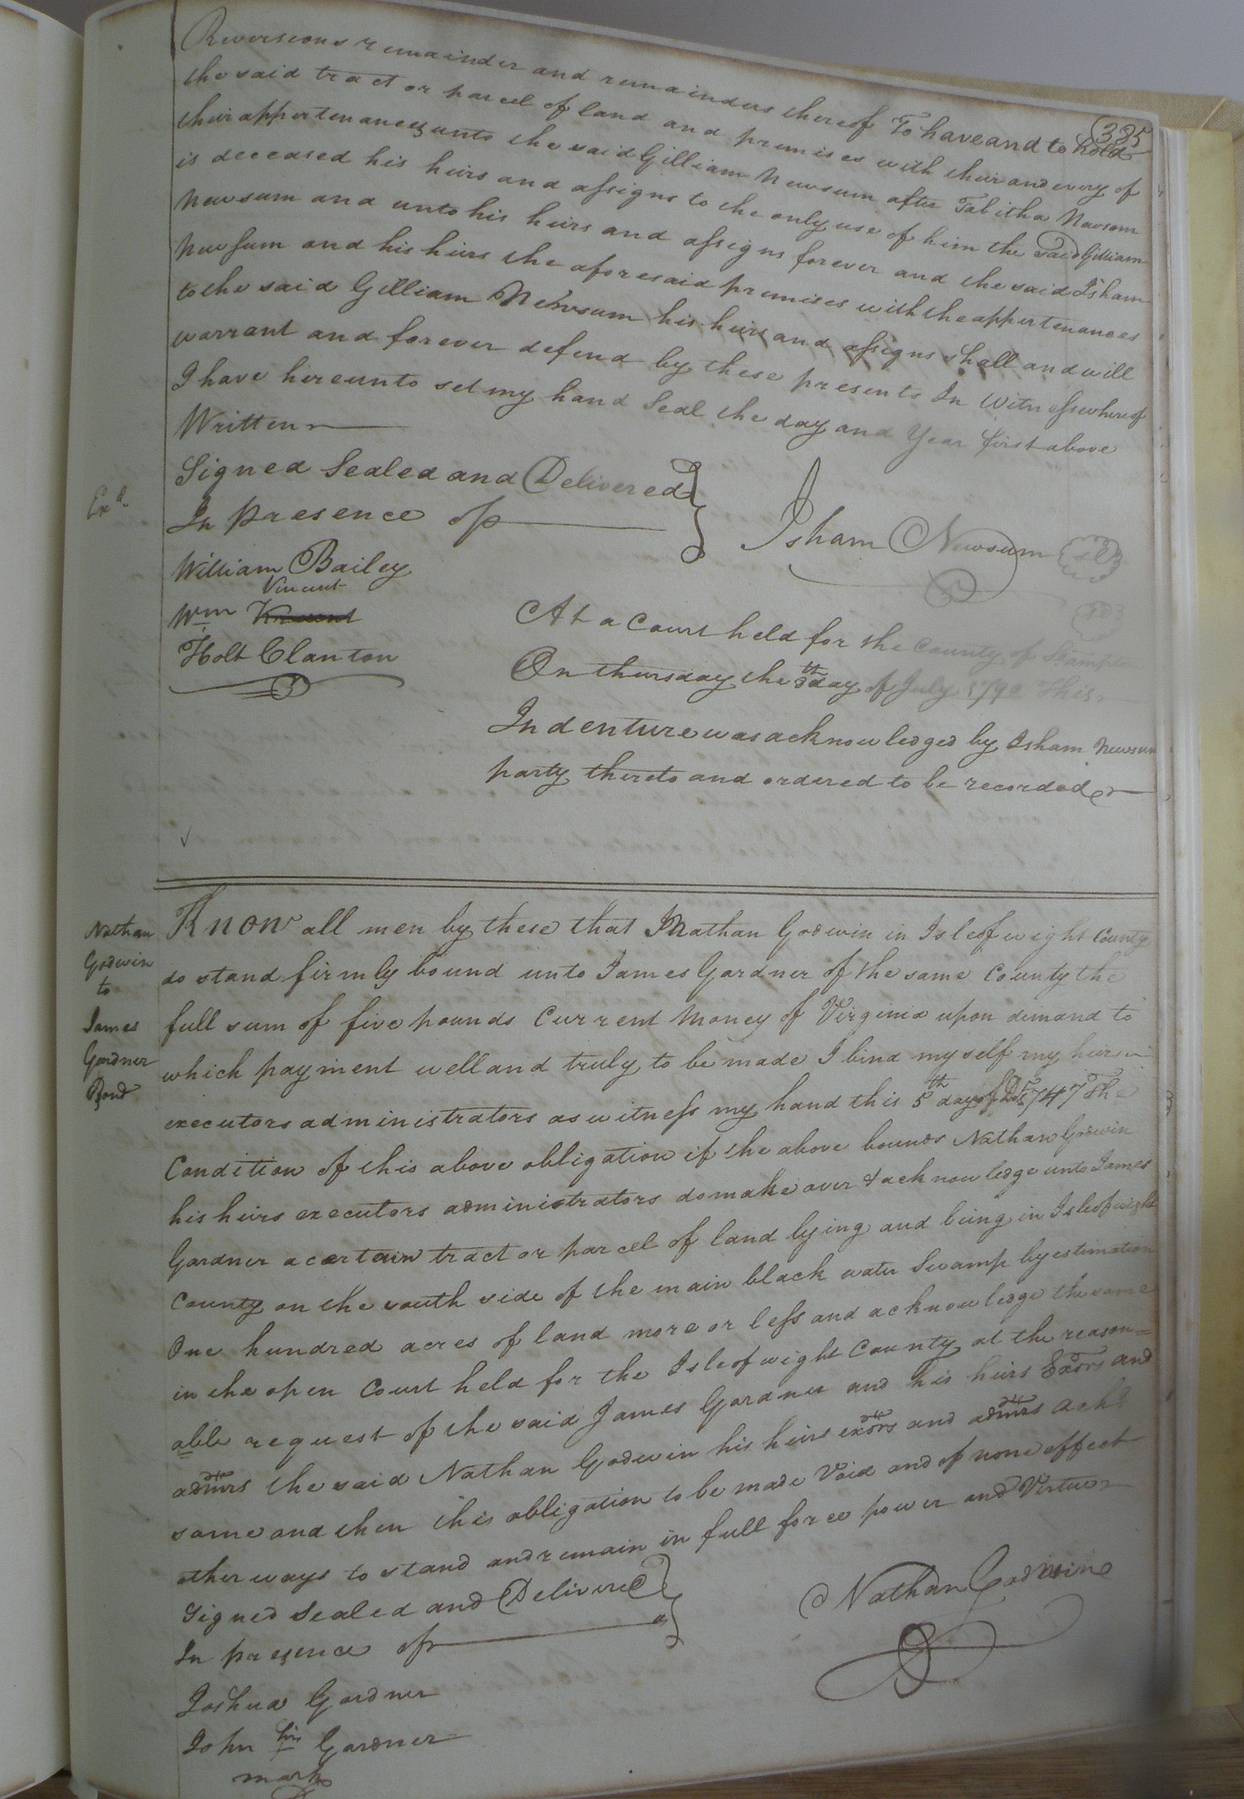 385
Reversions remainder and remainders thereof To have and to hold
the said tract or parcel of land and premises with their and every of
their appertenances unto the said Gilliam Newsum after Tabitha Newsom
is deceased his heirs and assigns to the only use of him the said Gilliam
Newsum and unto his heirs and assigns forever and the said Isham
Newsum and his heirs the aforesaid premises with the appertenances
to the said Gilliam Newsum his heirs and assigns shall and will
warrant and forever defend by these presents In Witness whereof
I have hereunto set my hand Seal the day and Year first above
Written
Signed Sealed and Delivered
In presence of
Isham Newsum
Exd.
William Bailey
Vincent
Wm
Holt Clanton
At a Court held for the County of
On thursday the day of July This
Indenture was acknowledged by Isham Newsum
party thereto and ordered to be recorded
Nathan
Godwin
to
James
Gardner
Bond
Know all men by these that I Nathan Godwin in Isle of wight County
do stand firmly bound unto James Gardner of the same County the
full sum of five pounds Current Money of Virginia upon demand to
which payment well and truly to be made I bind my self my heirs
executors administrators as witness my hand this 5th day of 1747 The
Condition of this above obligation if the above bounds Nathan Godwin
his heirs executors administrators do make over & acknowledge unto James
Gardner a certain tract or parcel of land lying and being in Isle of wight
County on the south side of the main black water Swamp by estimation
One hundred acres of land more or less and acknowledge the same
in the open Court held for the Isle of wight County at the reason=
able request of the said James Gardner and his heirs Exors and
admrs the said Nathan Godwin his heirs exors and admrs ackd
same and then this obligation to be made Void and of none effect
other ways to stand and remain in full force power and Virtue
Signed Sealed and Delivered
In presence of
Nathan Godwin
Joshua Gardner
John his Gardner
mark